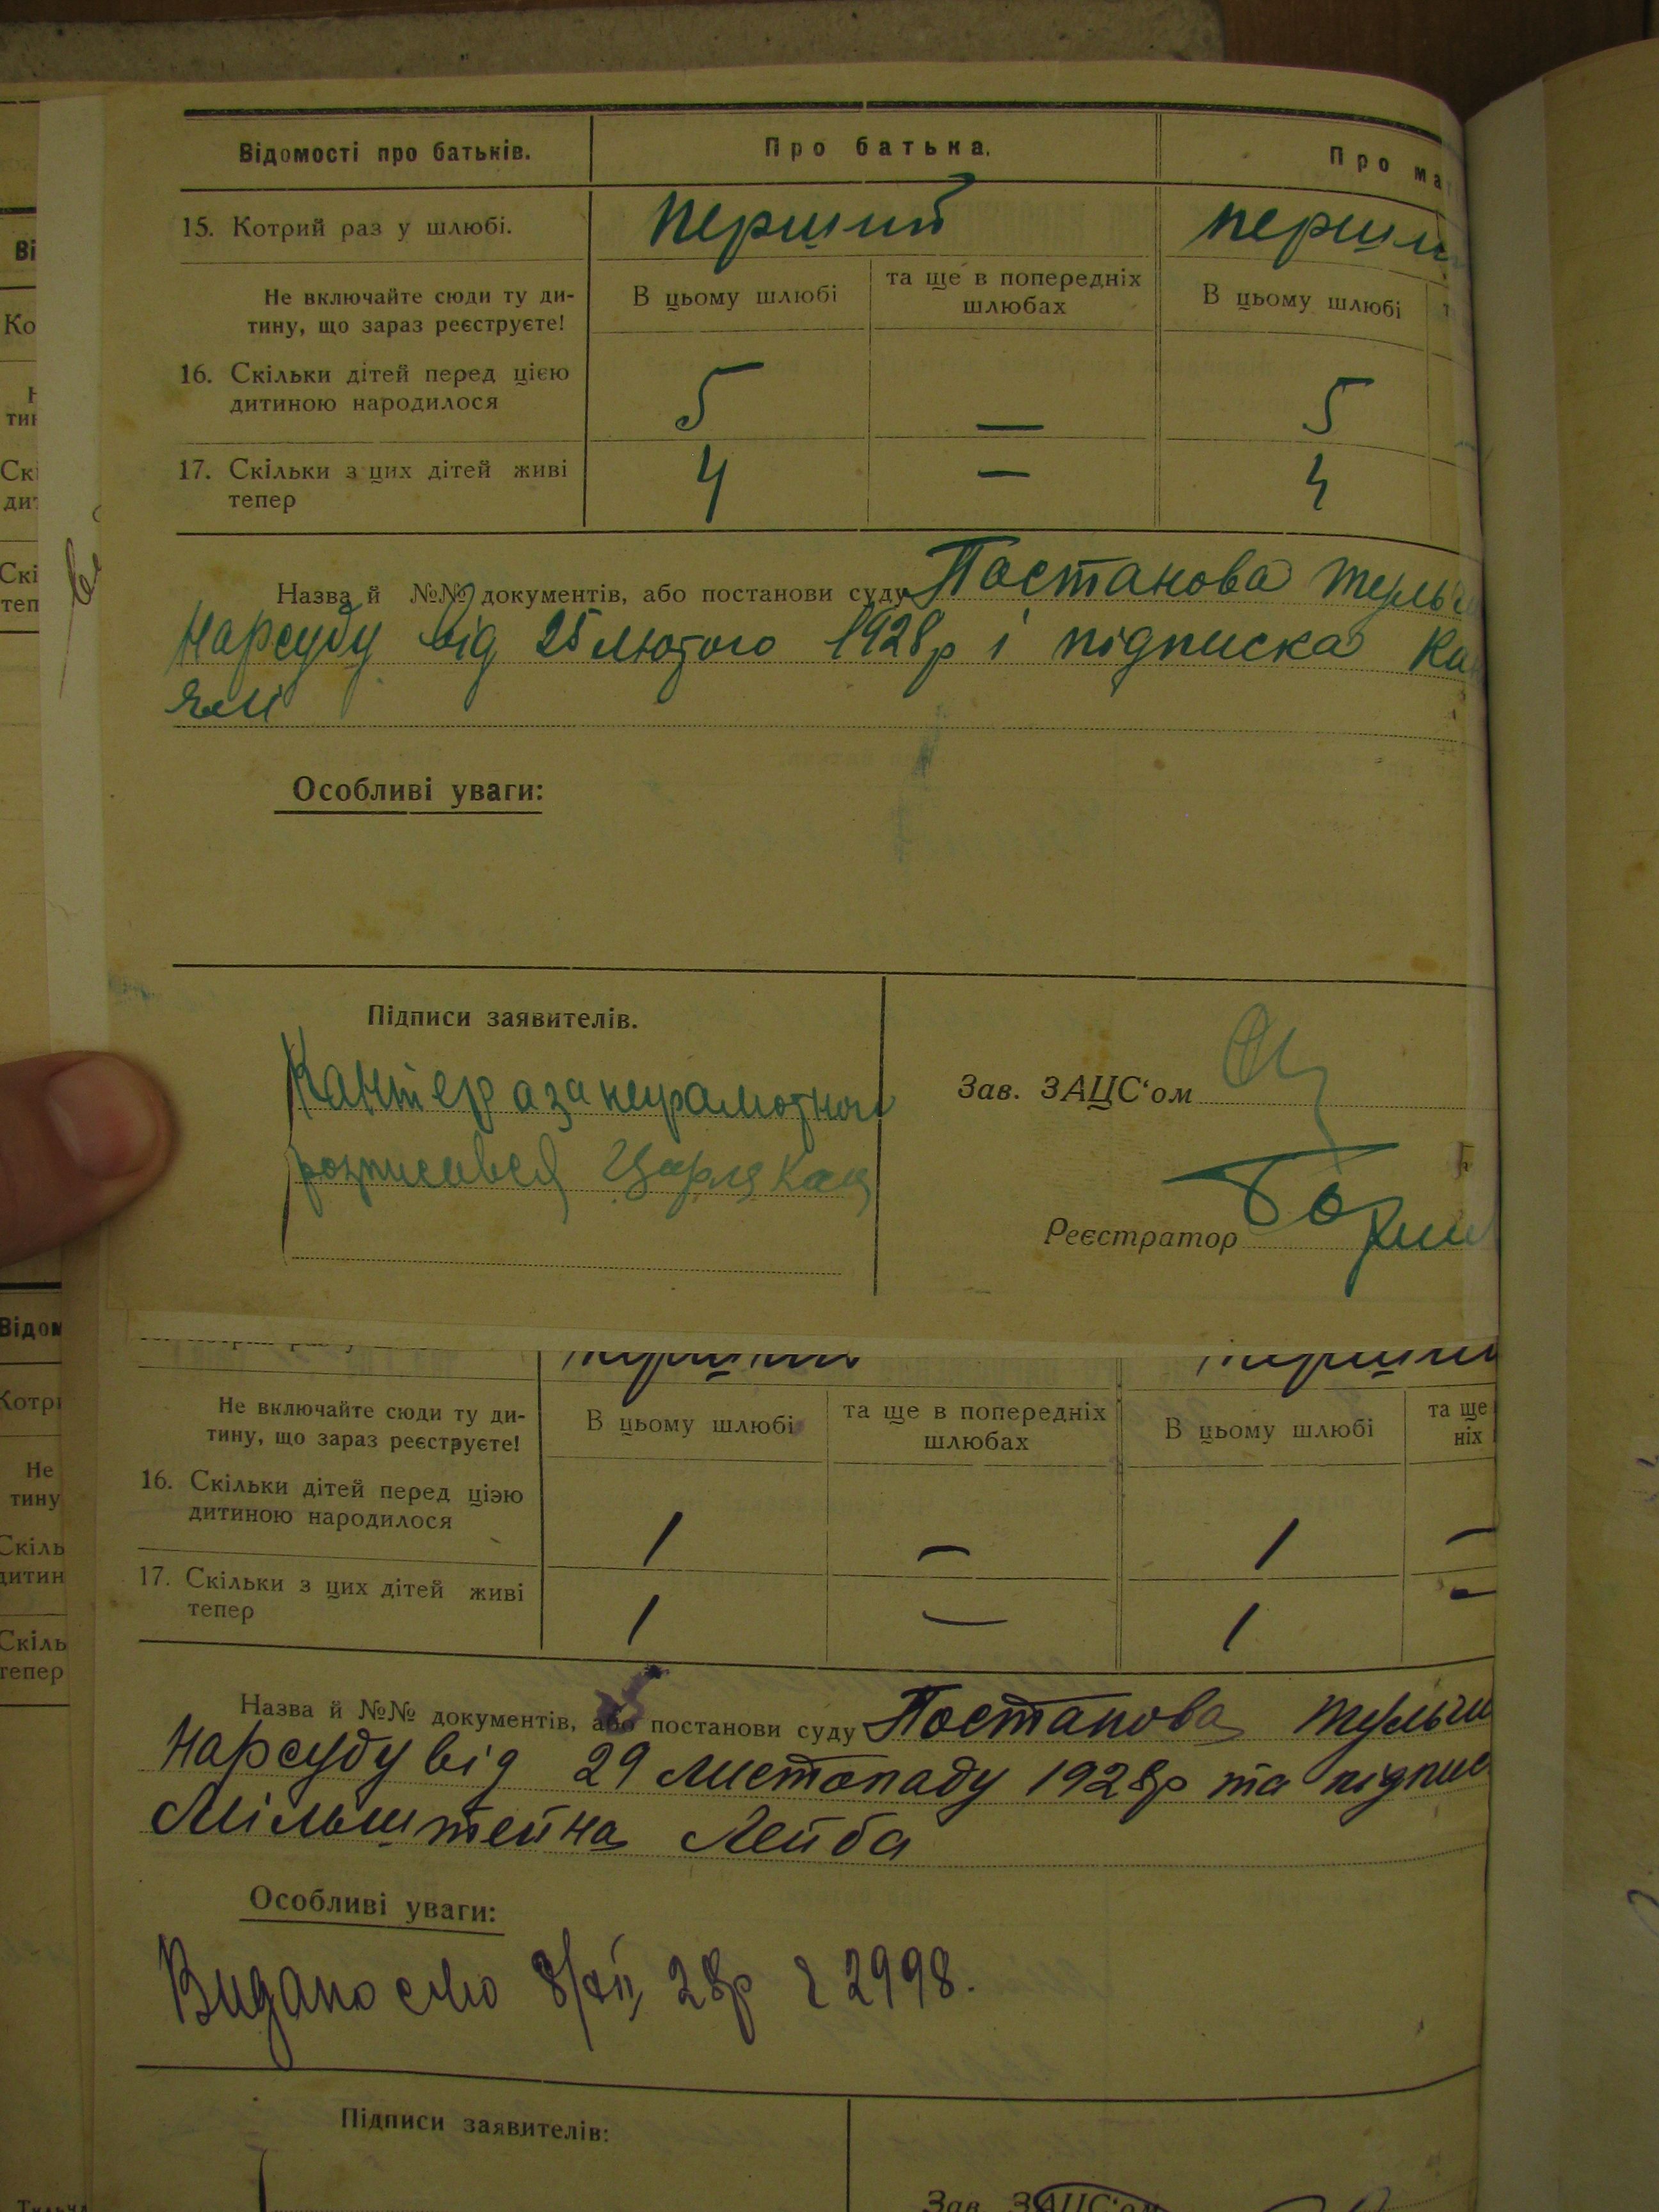 Відомості про батьків. Про батька. Про ма
15. Котрий раз у шлюбі. перший перши
Не включайте сюди ту ди-
тину, що зараз реєструєте!
В цьому шлюбі
та ще в попередніх
шлюбах
В цьому шлюбі
16. Скільки дітей перед цією
дитиною народилося
5 — 5
17. Скільки з цих дітей живі
тепер
4 — 4
Назва й №№ документів, або постанови суду Постанова Тульч
Нарсуду від 25 лютого 1928р і підписка Ка
Особливі уваги:
Підписи заявителів.
Кантер а за неграмотно
розписався Цирля Кац
Зав. ЗАЦС‘ом
Реєстратор
Не включайте сюди ту ди-
тину, що зараз реєструєте!
В цьому шлюбі
та ще в попередніх
шлюбах
В цьому шлюбі
та ще
ніх
16. Скільки дітей перед ціэю
дитиною народилося
1 — 1 —
17. Скільки з цих дітей живі
тепер
1 — 1 —
Назва й №№ документів, або постанови суду Постанова Тульчи
Нарсуду від 29 листопаду 1928р та підпис
Мільштейна Лейба
Особливі уваги:
Видано 8/XII 28р 2998.
Підписи заявителів:
Зав. ЗАЦС‘ом
Ві
Ко
тин
Скі
дит
Скі
теп
Відом
Котри
Не
тину
Скіль
дитин
Скіль
тепер